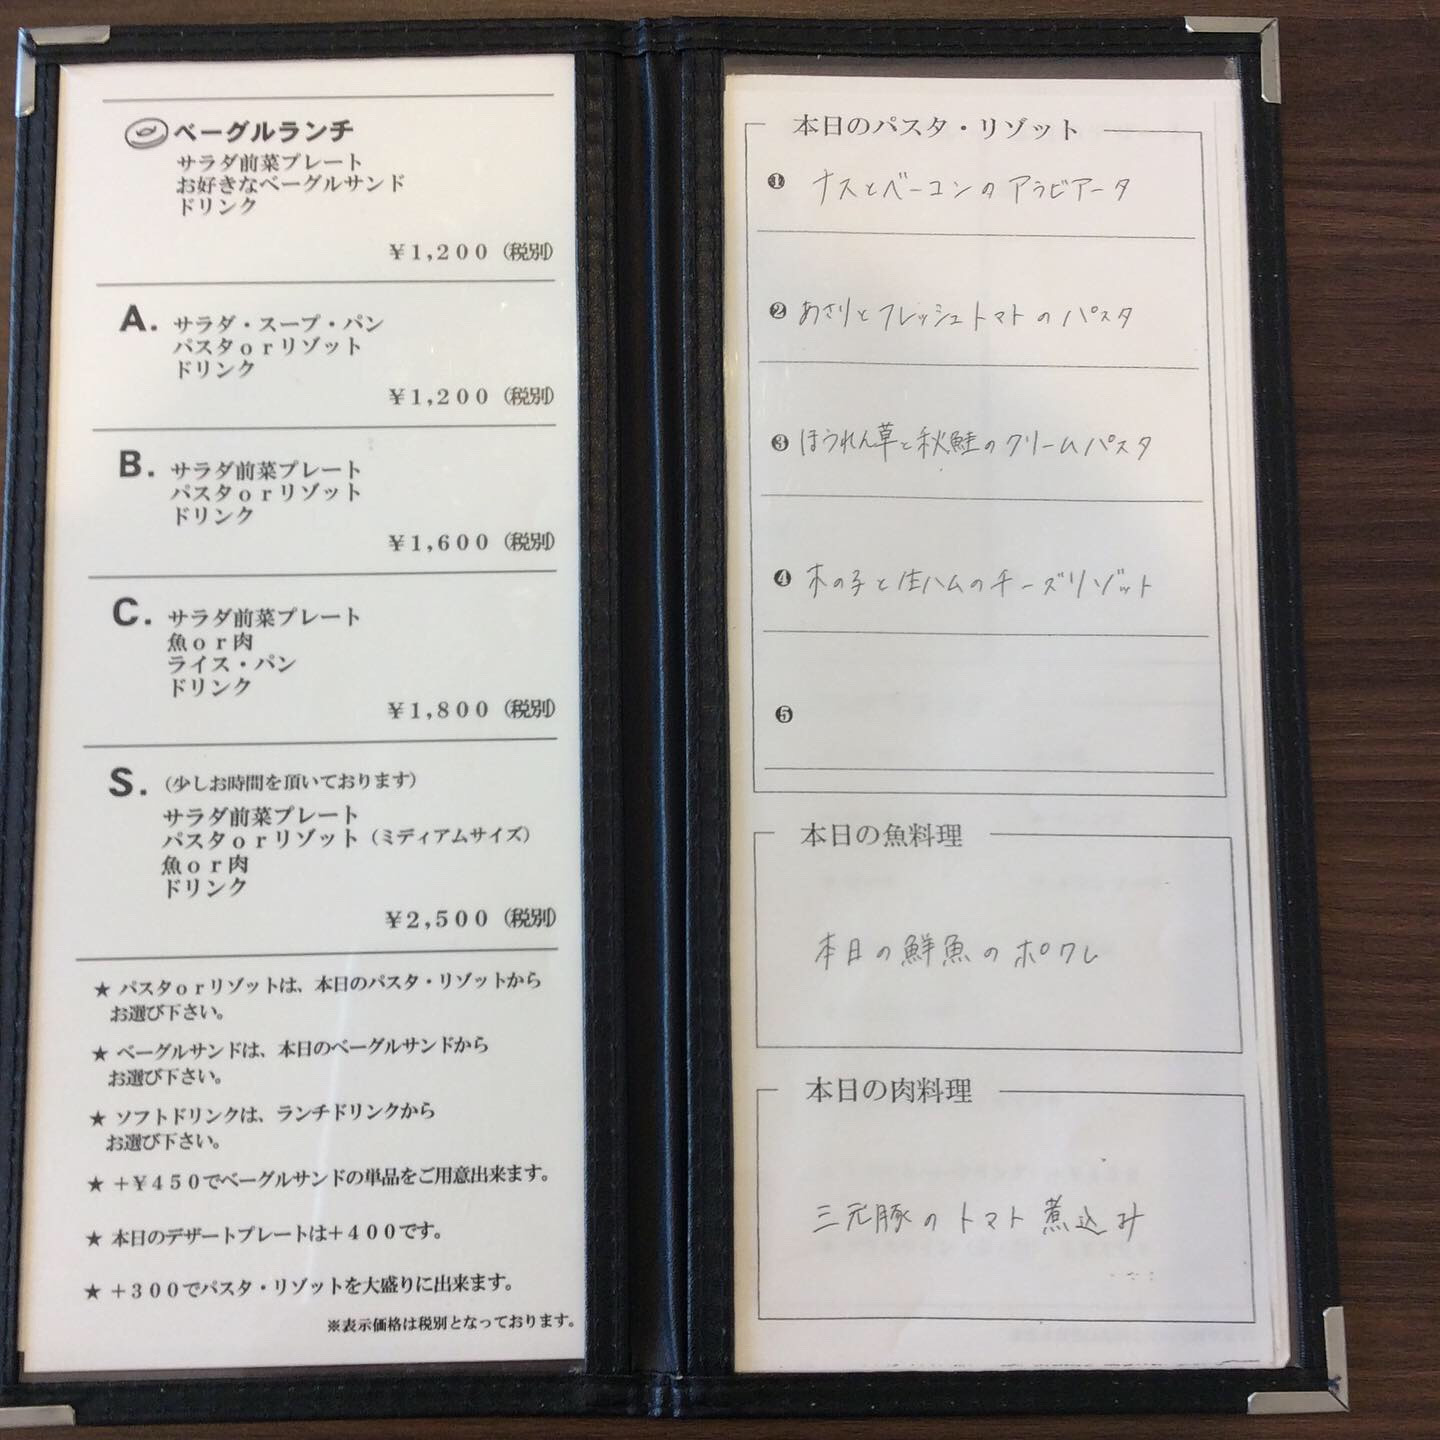 ベーグルランチ
サラダ前菜プレート
お好きなベーグルサンド
ドリンク
￥1,200（税別）
A.
サラダ・スープ・パン
パスタorリゾット
ドリンク
￥1,200（税別）
B.
サラダ前菜プレート
パスタorリゾット
ドリンク
￥1,600（税別）
C.
サラダ前菜プレート
魚or肉
ライス・パン
ドリンク
￥1,800（税別）
S.（少しお時間を頂いております）
サラダ前菜プレート
パスタorリゾット（ミディアムサイズ）
魚or肉
ドリンク
￥2,500（税別）
★ パスタorリゾットは、本日のパスタ・リゾットから
お選び下さい。
★ ベーグルサンドは、本日のベーグルサンドから
お選び下さい。
★ ソフトドリンクは、ランチドリンクから
お選び下さい。
★ ＋￥450でベーグルサンドの単品をご用意出来ます。
★ 本日のデザートプレートは＋400です。
★ ＋300でパスタ・リゾットを大盛りに出来ます。
※表示価格は税別となっております。
本日のパスタ・リゾット
❶ ナスとベーコンのアラビアータ
❷ あさりとフレッシュトマトのパスタ
❸ ほうれん草と秋鮭のクリームパスタ
❹ 木の子と生ハムのチーズリゾット
❺
本日の魚料理
本日の鮮魚のポワレ
本日の肉料理
三元豚のトマト煮込み